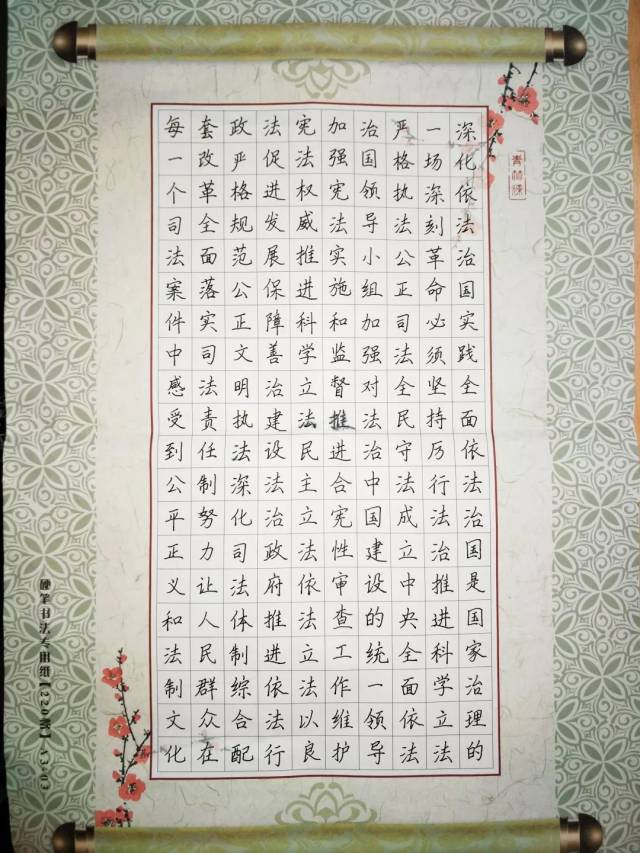 深化依法治国实践全面依法治国是国家治理的
一场深刻革命必须坚持厉行法治推进科学立法
严格执法公正司法全民守法成立中央全面依法
治国领导小组加强对法治中国建设的统一领导
加强宪法实施和监督推进合宪性审查工作维护
宪法权威推进科学立法民主立法依法立法以良
法促进发展保障善治建设法治政府推进依法行
政严格规范公正文明执法深化司法体制综合配
套改革全面落实司法责任制努力让人民群众在
每一个司法案件中感受到公平正义和法制文化
硬笔书法专用纸【220格】A3-03